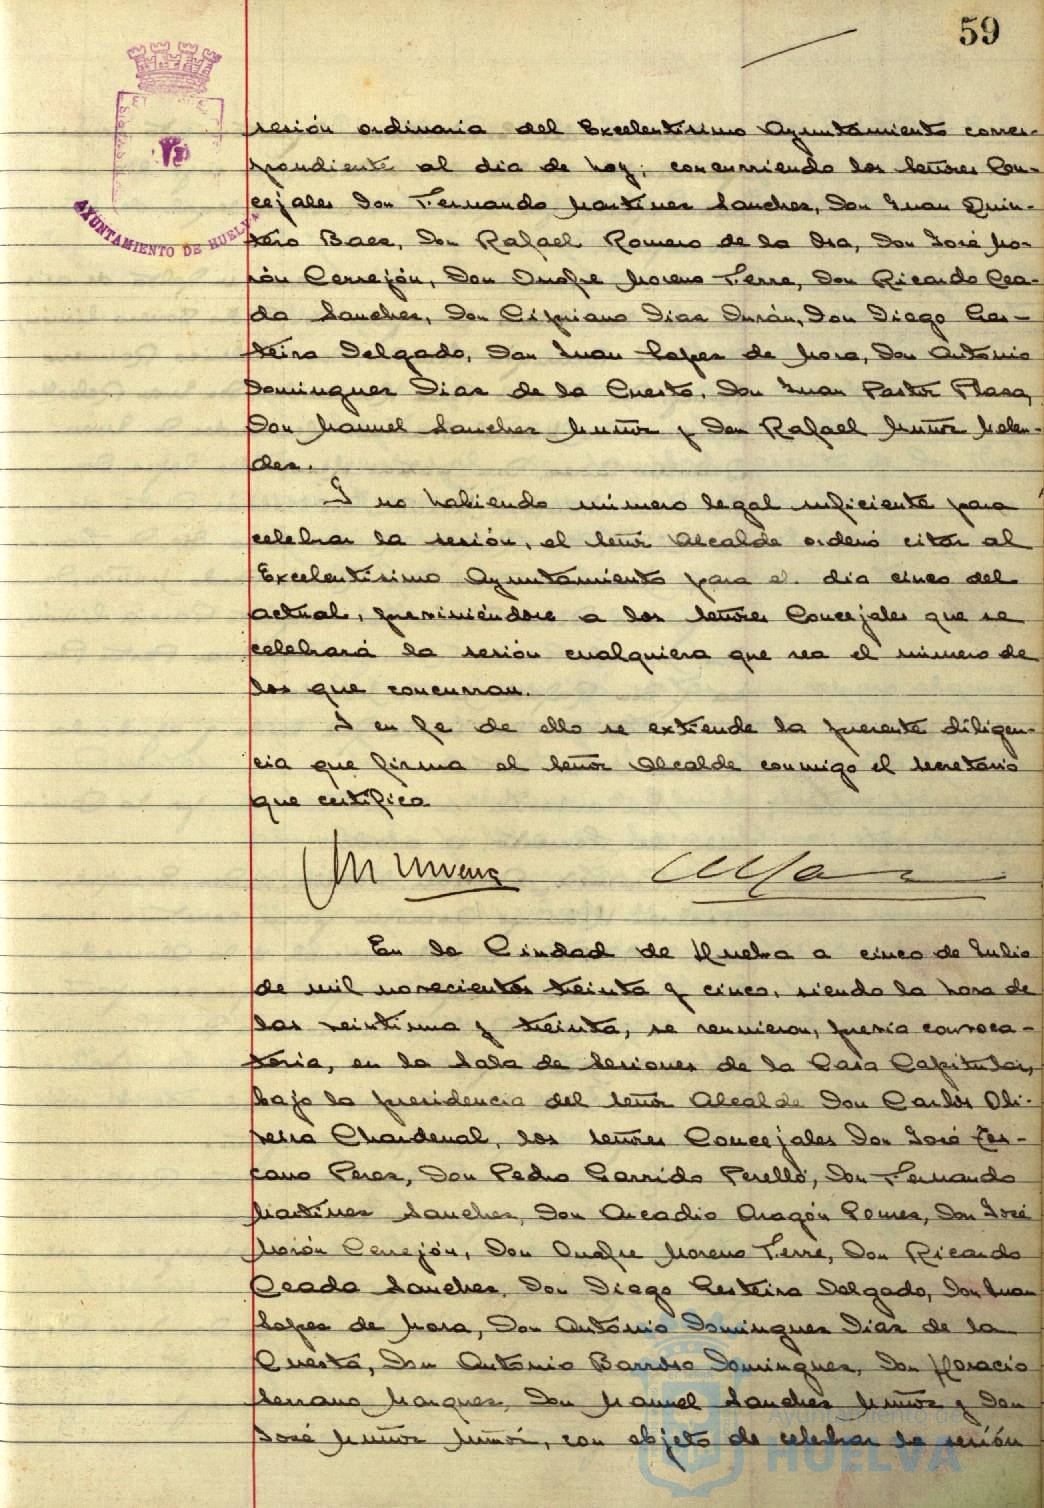 59
AYUNTAMIENTO DE HUELVA
sesión ordinaria del Excelentísimo Ayuntamiento corres-
pondiente al día de hoy; concurriendo los señores Con-
cejales Don Fernando Martinez Sanchez, Don Juan Quin-
tero Baez, Don Rafael Romero de la Osa, Don José Mo-
rón Cerrejón, Don Onofre Moreno Terre, Don Ricardo Cea-
da Sanchez, Don Cipriano Diaz Durán, Don Diego Ges-
teira Delgado, Don Juan Lopez de Mora, Don Antonio
Dominguez Diaz de la Cuesta, Don Juan Pastor Plaza,
Don Manuel Sanchez Muñoz y Don Rafael Muñoz Melen-
dez.
Y no habiendo número legal suficiente para
celebrar la sesión, el señor Alcalde ordenó citar al
Excelentísimo Ayuntamiento para el día cinco del
actual, previniéndose a los señores Concejales que se
celebrará la sesión cualquiera que sea el número de
los que concurran.
Y en fe de ello se extiende la presente diligen-
cia que firma el señor Alcalde conmigo el Secretario
que certifico
En la Ciudad de Huelva a cinco de Julio
de mil novecientos treinta y cinco, siendo la hora de
las veintiuna y treinta, se reunieron, previa convoca-
toria, en la Sala de Sesiones de la Casa Capitular,
bajo la presidencia del señor Alcalde Don Carlos Oli-
veira Chardenal, los señores Concejales Don José Lez-
cano Perez, Don Pedro Garrido Perelló, Don Fernando
Martinez Sanchez, Don Arcadio Aragón Gomez, Don José
Morón Cerrejón, Don Onofre Moreno Terre, Don Ricardo
Ceada Sanchez, Don Diego Gesteira Delgado, Don Juan
Lopez de Mora, Don Antonio Dominguez Diaz de la
Cuesta, Don Antonio Barroso Dominguez, Don Horacio
Serrano Marquez, Don Manuel Sanchez Muñoz y Don
José Muñoz Muñoz, con objeto de celebrar la sesión
Ayuntamiento de
HUELVA